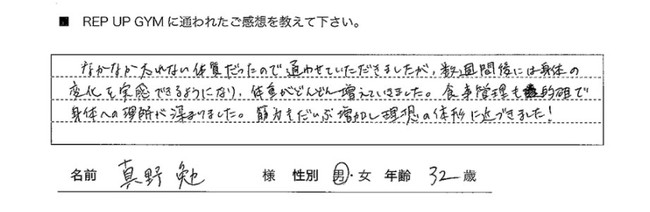 ■ REP UP GYM に通われたご感想を教えて下さい。
なかなか太れない体質だったので通わせていただきましたが、数週間後には身体の
変化を実感できるようになり、体重がどんどん増えていきました。食事管理も的確で
身体への理解が深まりました。筋力もだいぶ増加し理想の体形に近づきました!
名前 真野 勉 様 性別 男・女 年齢 32 歳